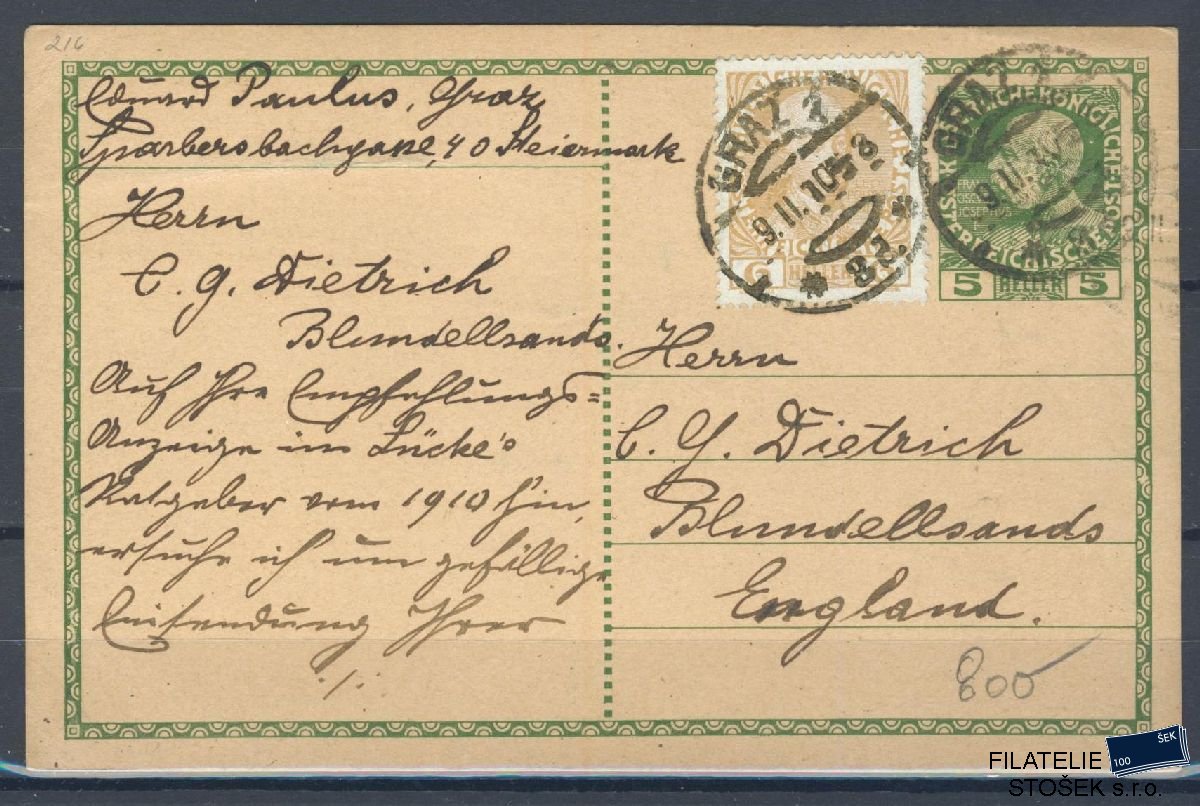 216
Eduard Paulus, Graz
Sparbersbachgasse, 40 Steiermark
Herrn
C. G. Dietrich
Blundellsands.
Auf Ihre Empfehlungs=
Anzeige im Lücke's
Ratgeber vom 1910 hin,
ersuche ich um gefällige
Einsendung Ihrer
./.
GRAZ 1
9.II.10
8a
6 HELLER
GRAZ
9.II.10
5 HELLER 5
Herrn
C. G. Dietrich
Blundellsands
England.
800
FILATELIE
STOŠEK s.r.o.
100 ŠEK